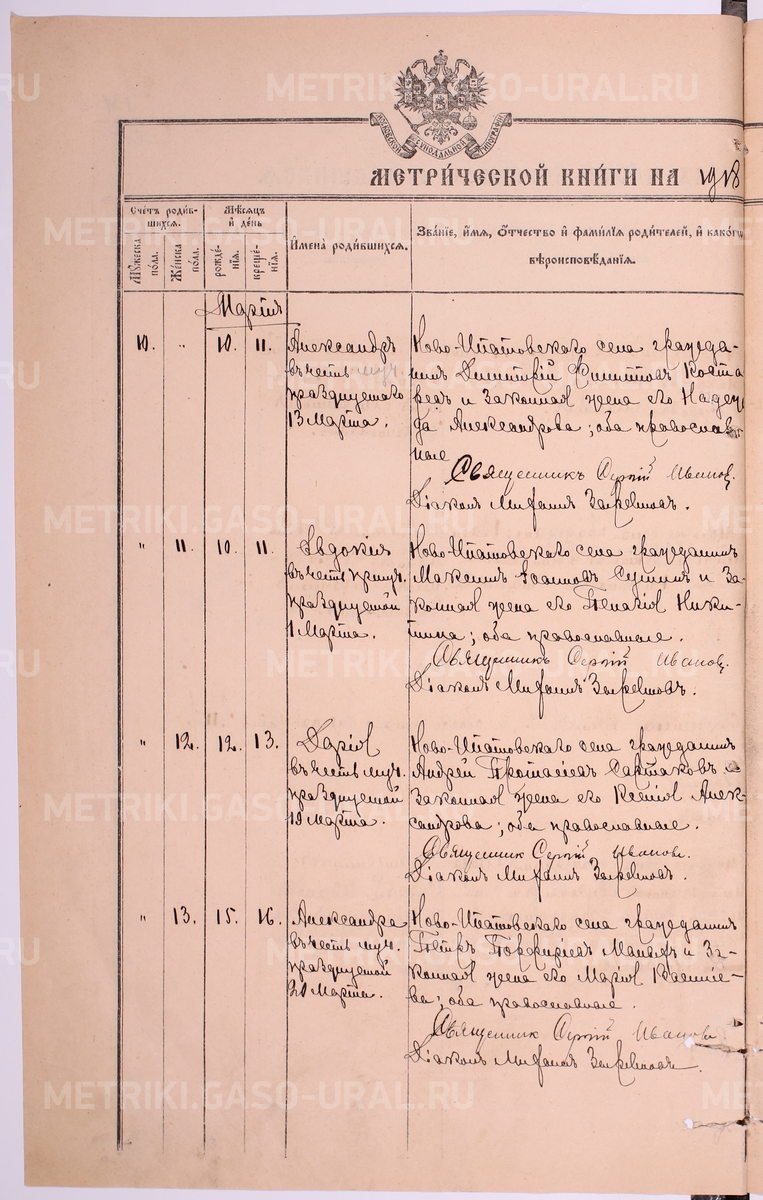 МЕТРИЧЕСКОЙ КНИГИ НА 1918
Счетъ родив-
шихся.
Мужеска
пола.
Женска
пола.
Мѣсяцъ
и день
рожде-
нія.
креще-
нія.
Имена родившихся.
Званіе, имя, отчество и фамилія родителей, и какого
вѣроисповѣданія.
Мартъ
10. " 10. 11.
Александръ
въ честь муч.
празднуемаго
13 Марта.
Ново-Ипатовскаго села гражда-
нинъ Димитрій
и законная жена его Надеж
да Александрова; оба православ
ные
Священникъ Сергій Иванов.
Діаконъ
" 11. 10. 11.
Евдокія
въ честь прмуч.
празднуемой
1 Марта.
Ново-Ипатовскаго села гражданинъ
Максимъ Іоанновъ и за-
конная жена его Ники-
тина; оба православные.
Священникъ Сергій Иванов.
Діаконъ
" 12. 12. 13.
Дарія
въ честь муч.
празднуемой
19 Марта.
Ново-Ипатовскаго села гражданинъ
Андрей Сартаковъ и
законная жена его Ксенія Алек-
сандрова; оба православные.
Священник Сергій Иванов.
Діаконъ
" 13. 15. 16.
Александра
въ честь муч.
празднуемой
20 Марта.
Ново-Ипатовскаго села гражданинъ
Петръ Порфиріевъ и за-
конная жена его Марія
ва; оба православные.
Священник Сергій Иванов
Діаконъ
METRIKI.GASO-URAL.RU